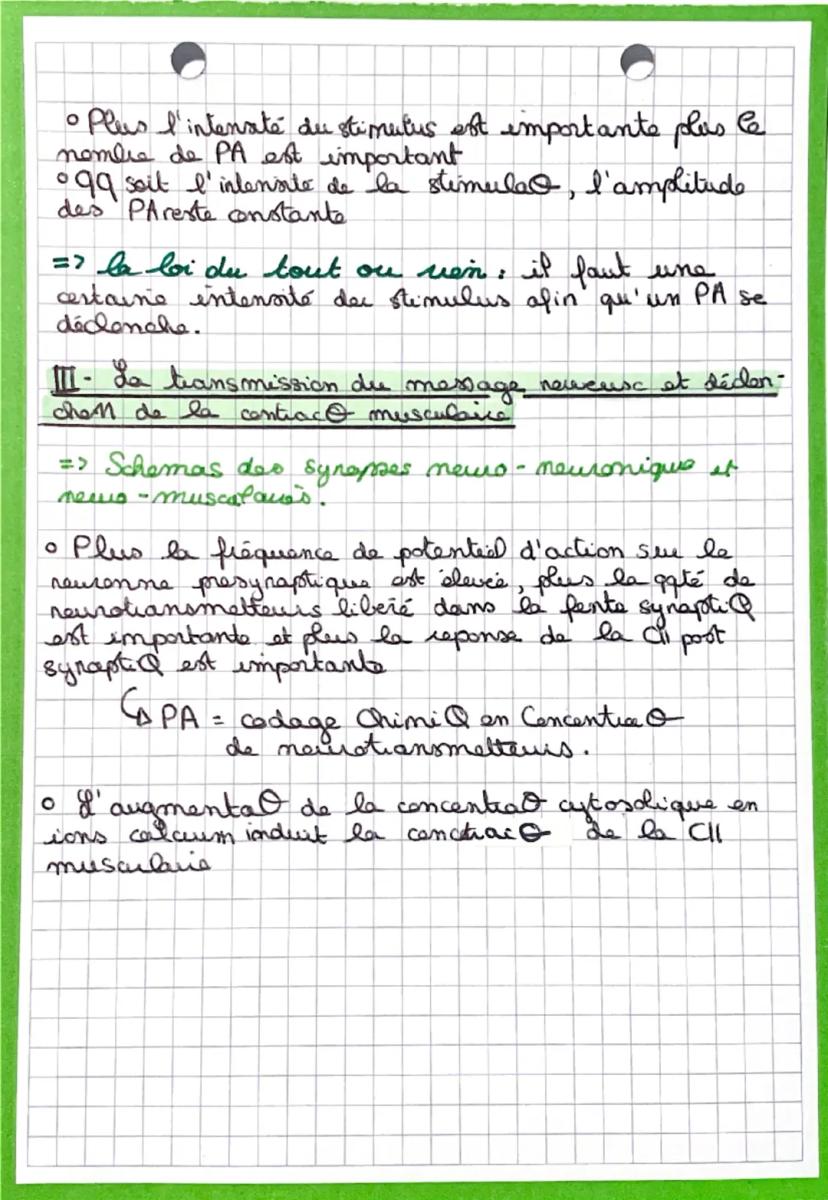 ° Plus l'intensité du stimulus est importante plus le
nombre de PA est important
° qq soit l'intensité de la stimulaΘ, l'amplitude
des PA reste constante
=> la loi du tout ou rien : il faut une
certaine intensité du stimulus afin qu'un PA se
déclenche.
III - La transmission du message nerveuse et déclen-
cheM de la contracΘ musculaire
=> Schemas des synapses neuro-neuronique et
neuro-musculaires.
° Plus la fréquence de potentiel d'action sur le
neuronne presynaptique est élevée, plus la qqté de
neurotransmetteurs libéré dans la fente synaptiQ
est importante et plus la reponse de la Cll post
synaptiQ est importante
↳ PA = codage ChimiQ en ConcentraΘ
de neurotransmetteurs.
° L'augmentaΘ de la concentraΘ cytosolique en
ions calcium induit la conctracΘ de la Cll
musculaire